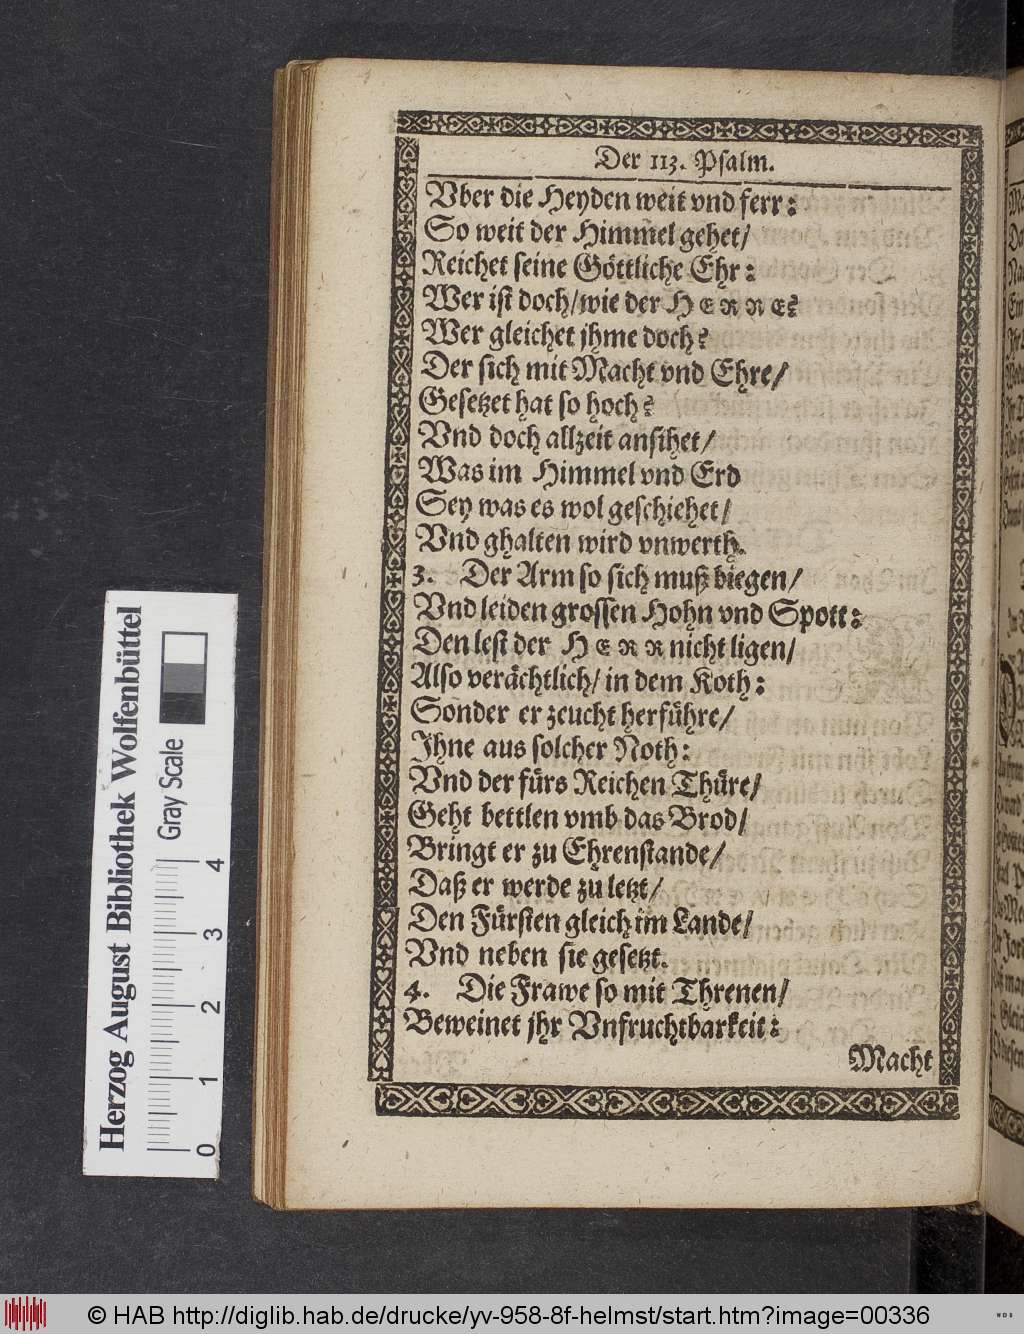 Der 113. Psalm.
Vber die Heyden weit vnd ferr:
So weit der Himmel gehet/
Reichet seine Göttliche Ehr:
Wer ist doch/wie der HERRE?
Wer gleichet jhme doch?
Der sich mit Macht vnd Ehre/
Gesetzet hat so hoch?
Vnd doch allzeit ansihet/
Was im Himmel vnd Erd
Sey was es wol geschiehet/
Vnd ghalten wird vnwerth.
3. Der Arm so sich muß biegen/
Vnd leiden grossen Hohn vnd Spott:
Den lest der HERR nicht ligen/
Also verächtlich/ in dem Koth:
Sonder er zeucht herführe/
Ihne aus solcher Noth:
Vnd der fürs Reichen Thüre/
Geht bettlen vmb das Brod/
Bringt er zu Ehrenstande/
Daß er werde zu letzt/
Den Fürsten gleich im Lande/
Vnd neben sie gesetzt.
4. Die Frawe so mit Threnen/
Beweinet jhr Vnfruchtbarkeit:
Macht
Herzog August Bibliothek Wolfenbüttel
Gray Scale
0 1 2 3 4
© HAB http://diglib.hab.de/drucke/yv-958-8f-helmst/start.htm?image=00336